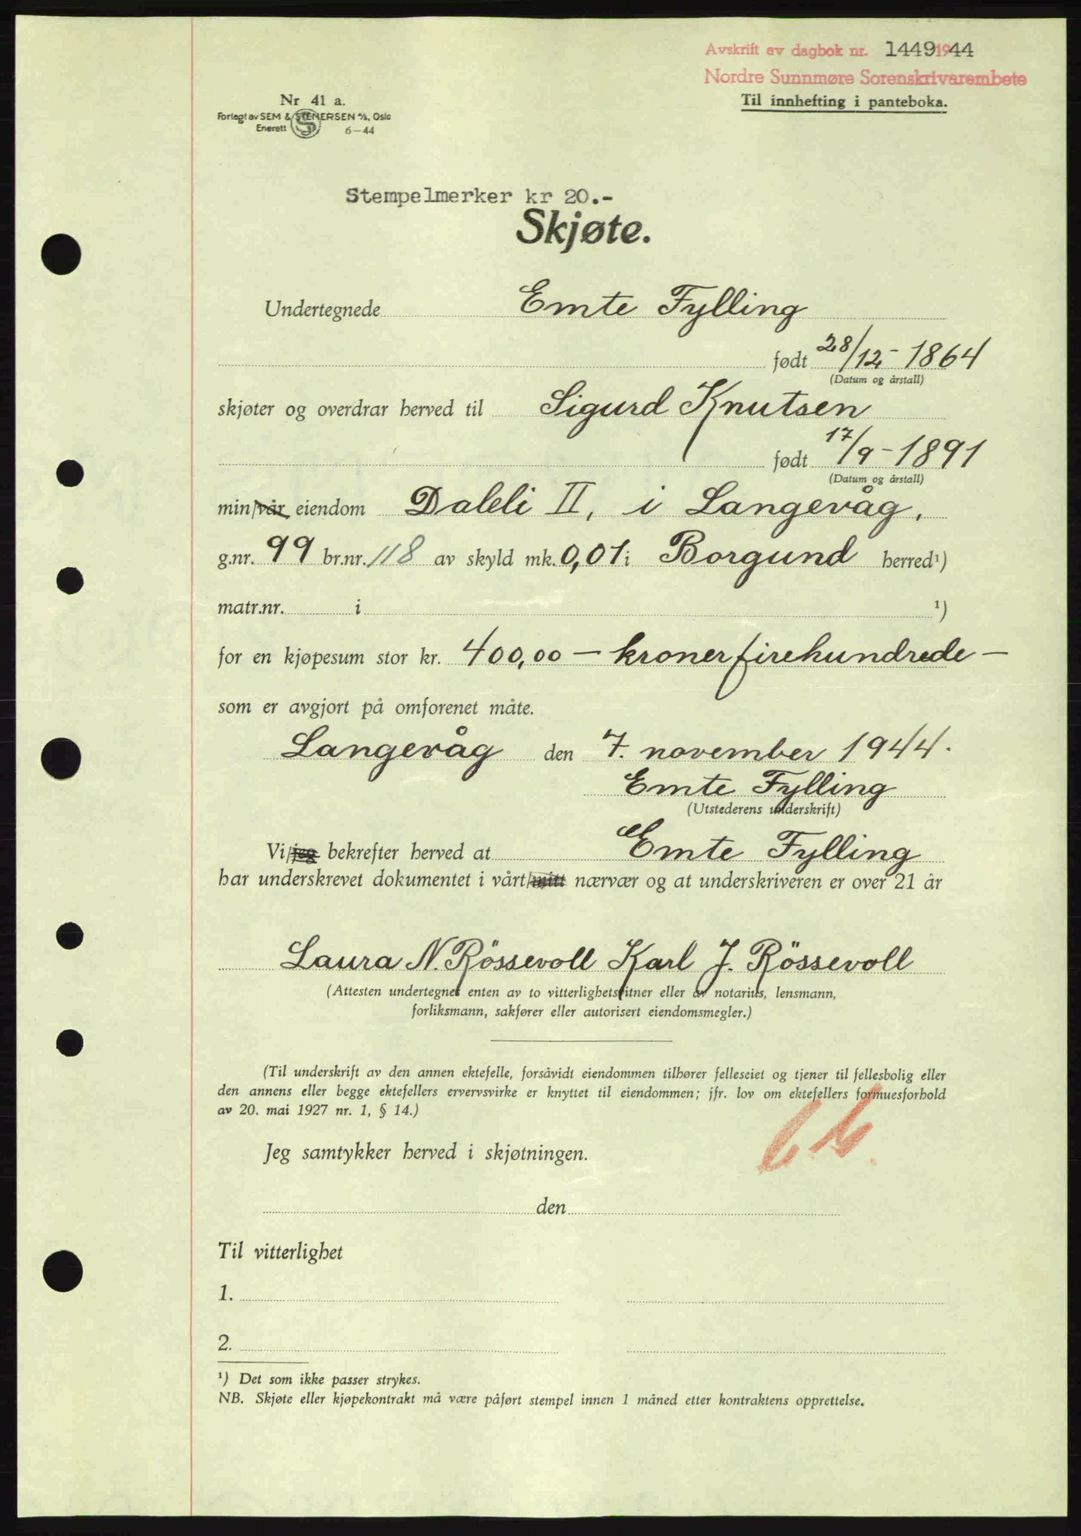 Avskrift av dagbok nr. 1449 1944
Nordre Sunnmøre Sorenskrivarembete
Til innhefting i panteboka.
Nr 41 a.
Forlagt av SEM & STENERSEN A/S, Oslo
Enerett S 6-44
Stempelmerker kr 20.-
Skjøte.
Undertegnede Emte Fylling
født 28/12 - 1864
(Datum og årstall)
skjøter og overdrar herved til Sigurd Knutsen
født 17/9 - 1891
(Datum og årstall)
min/vår eiendom Daleli II, i Langevåg,
g.nr. 99 br.nr. 118 av skyld mk. 0,01 i Borgund herred¹)
matr.nr. i ¹)
for en kjøpesum stor kr. 400,00 — kroner firehundrede —
som er avgjort på omforenet måte.
Langevåg den 7. november 1944.
Emte Fylling
(Utstederens underskrift)
Vi/jeg bekrefter herved at Emte Fylling
har underskrevet dokumentet i vårt/mitt nærvær og at underskriveren er over 21 år
Laura N. Rössevoll Karl J. Rössevoll
(Attesten undertegnet enten av to vitterlighetsvitner eller av notarius, lensmann,
forliksmann, sakfører eller autorisert eiendomsmegler.)
(Til underskrift av den annen ektefelle, forsåvidt eiendommen tilhører felleseiet og tjener til fellesbolig eller
den annens eller begge ektefellers ervervsvirke er knyttet til eiendommen; jfr. lov om ektefellers formuesforhold
av 20. mai 1927 nr. 1, § 14.)
Jeg samtykker herved i skjøtningen.
den
Til vitterlighet
1.
2.
¹) Det som ikke passer strykes.
NB. Skjøte eller kjøpekontrakt må være påført stempel innen 1 måned etter kontraktens opprettelse.